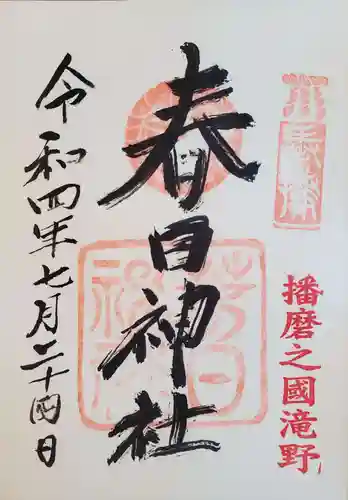 奉拝
播磨之國滝野
春日神社
令和四年七月二十四日